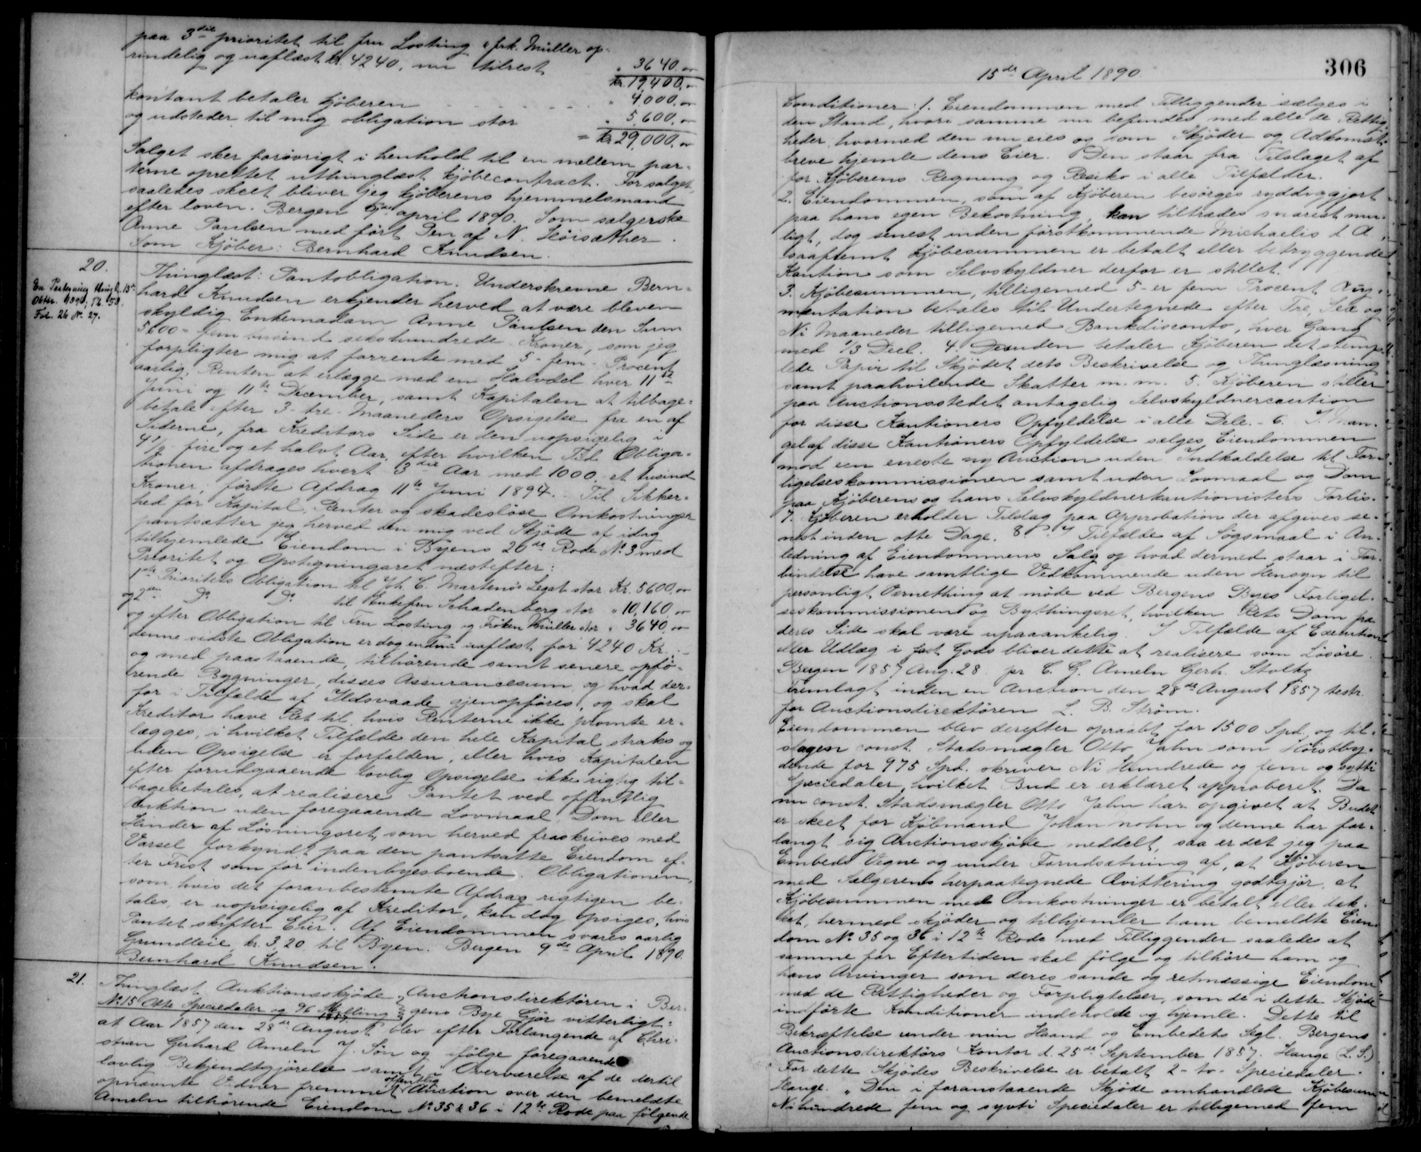 paa 3die prioritet til fru Losting & frk. Müller op-
rindelig og uaflæst kr. 4240, nu tilrest " 3640, "
Kr 19,400, "
kontant betaler kjøberen " 4000, "
og udsteder til mig obligation stor " 5,600, "
= Kr 29,000, "
Salget sker forøvrigt i henhold til en mellem par-
terne oprettet uthinglæst kjøbecontract. For salget
saaledes skeet bliver jeg kjøberens hjemmelsmand
efter loven. Bergen april 1890. Som sælgerske
Anne Paulsen med ført Pen af N. Høisæther.
Som Kjøber: Bernhard Knudsen.
20.
Thinglæst: Pantobligation. Underskrevne Bern-
hard Knudsen erkjender herved at være bleven
skyldig Enkemadam Anne Paulsen den Sum
5600 - fem tusind sekshundrede - Kroner, som jeg
forpligter mig at forrente med 5 - fem - Procent
aarlig, Renten at erlægge med en Halvdel hver 11te
Juni og 11te December, samt Kapitalen at tilbage-
betale efter 3 - tre - Maaneders Opsigelse fra en af
Siderne, fra Kreditors Side er den uopsigelig i
4½, fire og et halvt Aar, efter hvilken Tid Obliga-
tionen afdrages hvert 3die Aar med 1000 - et tusind
Kroner, første Afdrag 11te Juni 1894. Til Sikker-
hed for Kapital, Renter og skadesløse Omkostninger
pantsætter jeg herved den mig ved Skjøde af idag
tilhjemlede Eiendom i Byens 26de Rode No 3 med
Prioritet og Opstigningsret næstefter:
1ste Prioritets Obligation til C. Martens Legat stor Kr. 5600, "
og 2den Do Do til Enkefru Schadenberg stor " 10,160 "
og efter Obligation til Fru Losting og Frøken Müller stor " 3640, "
denne sidste Obligation er dog endnu uaflæst for 4240 Kr. -
og med paastaaende, tilhørende samt senere opfø-
rende Bygninger, disses Assurancesum, og hvad der-
for i Tilfælde af Ildsvaade gjenopføres, og skal
Kreditor have Ret til, hvis Renterne ikke promte er-
lægges, i hvilket Tilfælde den hele Kapital straks og
uden Opsigelse er forfalden, eller hvis Kapitalen
efter forudgaaende lovlig Opsigelse ikke rigtig til-
bagebetales, at realisere Pantet ved offentlig
Auktion uden foregaaende Lovmaal Dom eller
Hinder af Løsningsret som herved fraskrives med
Varsel forkyndt paa den pantsatte Eiendom ef-
ter Frist som for indenbyesboende. Obligationen,
som, hvis det foranbestemte Afdrag rigtigen be-
tales, er uopsigelig af Kreditor, kan dog opsiges, hvis
Pantet skifter Eier. Af Eiendommen svares aarlig
Grundleie kr. 3.20 til Byen. Bergen 9de April 1890.
Bernhard Knudsen.
21.
Thinglæst Auktionsskjøde, Auctionsdirektøren i Ber-
No 15 Otte Speciedaler og 96 Skilling gens Bye Gjør vitterligt:
at Aar 1857 den 28de August blev efter Forlangende af Chri-
stian Gerhard Ameln J. Søn og ifølge foregaaende
lovlig Bekjendtgjørelse samt i Overværelse af de dertil
opnævnte Vidner fremme offentlig Auction over den bemeldte
Ameln tilhørende Eiendom No 35 & 36 i 12te Rode paa følgende
15de April 1890.
306
Conditioner 1. Eiendommen med Tilliggender sælges i
den Stand, hvori samme nu befindes med alle de Rettig-
heder, hvormed den nu eies og som Skjøder og Adkomst-
breve hjemle dens Eier. Den staar fra Tilslaget af
for Kjøberens Regning og Risiko i alle Tilfælder.
2. Eiendommen, som af Kjøberen besørges ryddiggjort
paa hans egen Bekostning, kan tiltrædes snarest mu-
ligt, dog senest inden førstkommende Michaelis d. A.,
saafremt Kjøbesummen er betalt eller betryggende
Kaution som Selvskyldner derfor er stillet.
3. Kjøbesummen, tilligemed 5 - fem Procent Aug-
mentation betales til Undertegnede efter Tre, Sex og
Ni Maaneder tilligemed Bankdisconto, hver Gang
med 1/3 Deel. 4. Desuden betaler Kjøberen det stemp-
lede Papir til Skjødet dets Beskrivelse og Thinglæsning
samt paahvilende Skatter m. m. 5. Kjøberen stiller
paa Auctionsstedet antagelig Selvskyldnercaution
for disse Kautioners Opfyldelse i alle Dele. 6. I Man-
gel af disse Kautioners Opfyldelse sælges Eiendommen
mod een eneste ny Auction uden Indkaldelse til For-
ligelseskommissionen samt uden Lovmaal og Dom
paa Kjøberens og hans Selvskyldnerkautionisters Forlis.
7. Kjøberen erholder Tilslag paa Approbation der afgives se-
nest inden otte Dage. 8. I Tilfælde af Søgsmaal i An-
ledning af Eiendommens Salg og hvad dermed staar i For-
bindelse have samtlige Vedkommende uden Hensyn til
personligt Værnething at møde ved Bergens Byes Forligel-
seskommissionen og Bythingsret, hvilken Rets Dom fra
deres Side skal være upaaankelig. I Tilfælde af Execution
eller Udlæg i fast Gods bliver dette at realisere som Løsøre.
Bergen 1857 Aug. 28. pr C. G. Ameln Gerh. Stoltz
Fremlagt inden en Auction den 28de August 1857 test.
for Auctionsdirektøren L. B. Strøm.
Eiendommen blev derefter opraabt for 1500 Spd. og til-
slagen const. Stadsmægler Otto Jahn som Høistby-
dende for 975 Spd. skriver Ni Hundrede og fem og sytti
Speciedaler, hvilket Bud er erklæret approberet. Da
nu const. Stadsmægler Otto Jahn har opgivet at Budet
er skeet for Kjøbmand Johan nohn og denne har for-
langt sig Auctionsskjøde meddelt, saa er det jeg paa
Embeds Vegne og under Forudsætning af, at Kjøberen
med Sælgerens herpaategnede Qvittering godtgjør, at
Kjøbesummen med Omkostninger er betalt eller dæk-
ket, hermed skjøder og tilhjemler ham bemeldte Eien-
dom No 35 og 36 i 12te Rode med Tilliggender saaledes at
samme for Eftertiden skal følge og tilhøre ham og
hans Arvinger som deres sande og retmæssige Eiendom
med de Rettigheder og Forpligtelser, som de i dette Skjøde
indførte Konditioner indeholde og hjemle. Dette til
Bekræftelse under min Haand og Embedets Segl. Bergens
Auctionsdirektørs Kontor d. 25de September 1857. Hauge (L.S.)
For dette Skjødes Beskrivelse er betalt 2 - to - Speciedaler.
Hauge. Den i foranstaaende Skjøde omhandlede Kjøbesum
Nihundrede fem og sytti Speciedaler er tilligemed fem